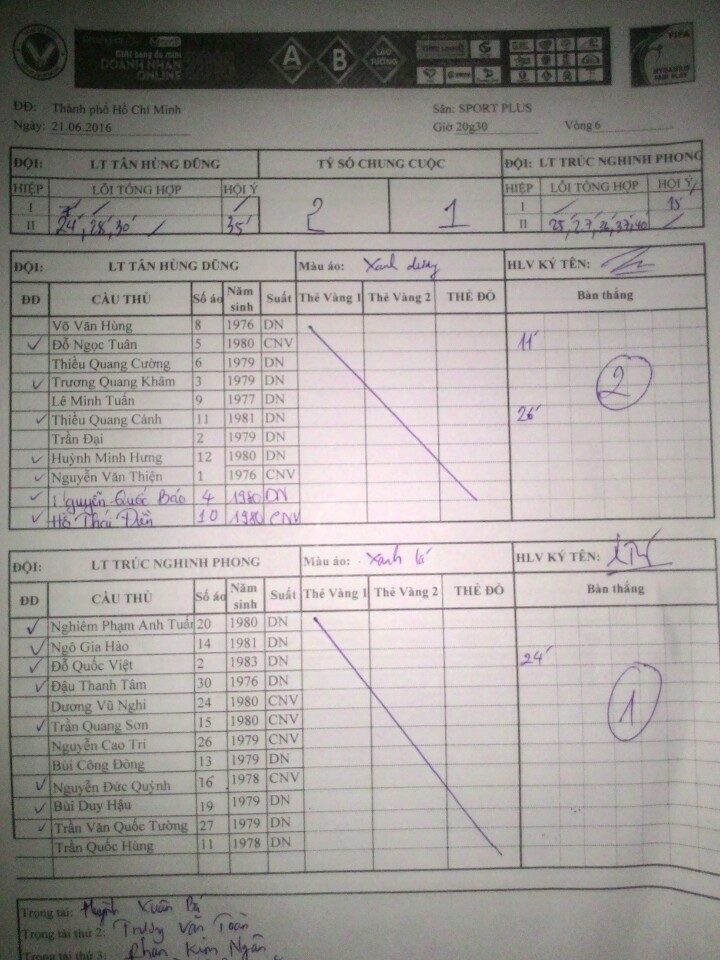 GIẢI bóng đá mini
DOANH NHÂN
ONLINE
A B LAO TƯỞNG
FIFA
ĐĐ: Thành phố Hồ Chí Minh Sân: SPORT PLUS
Ngày: 21.06.2016 Giờ 20g30 Vòng 6
ĐỘI: LT TÂN HÙNG DŨNG TỶ SỐ CHUNG CUỘC ĐỘI: LT TRÚC NGHINH PHONG
HIỆP LỖI TỔNG HỢP HỘI Ý 2 1 HIỆP LỖI TỔNG HỢP HỘI Ý
I I 15'
II 24', 28', 30' 35' II 25', 27', 36', 37', 40'
ĐỘI: LT TÂN HÙNG DŨNG Màu áo: Xanh dương HLV KÝ TÊN:
ĐD CẦU THỦ Số áo Năm sinh Suất Thẻ Vàng 1 Thẻ Vàng 2 THẺ ĐỎ Bàn thắng
Võ Văn Hùng 8 1976 DN
✓ Đỗ Ngọc Tuân 5 1980 CNV 11'
Thiều Quang Cường 6 1979 DN
✓ Trương Quang Khâm 3 1979 DN 2
Lê Minh Tuấn 9 1977 DN
✓ Thiều Quang Cảnh 11 1981 DN 26'
Trần Đại 2 1979 DN
✓ Huỳnh Minh Hưng 12 1980 DN
✓ Nguyễn Văn Thiện 1 1976 CNV
✓ Nguyễn Quốc Bảo 4 1980 DN
✓ Hồ Thái Điền 10 1980 CNV
ĐỘI: LT TRÚC NGHINH PHONG Màu áo: Xanh lá HLV KÝ TÊN:
ĐD CẦU THỦ Số áo Năm sinh Suất Thẻ Vàng 1 Thẻ Vàng 2 THẺ ĐỎ Bàn thắng
✓ Nghiêm Phạm Anh Tuấn 20 1980 DN
✓ Ngô Gia Hào 14 1981 DN
✓ Đỗ Quốc Việt 2 1983 DN 24'
✓ Đậu Thanh Tâm 30 1976 DN
Dương Vũ Nghi 24 1980 CNV 1
✓ Trần Quang Sơn 15 1980 CNV
Nguyễn Cao Trí 26 1979 CNV
Bùi Công Đông 13 1979 DN
✓ Nguyễn Đức Quỳnh 16 1978 CNV
✓ Bùi Duy Hậu 19 1979 DN
✓ Trần Văn Quốc Tường 27 1979 DN
Trần Quốc Hùng 11 1978 DN
Trọng tài: Huỳnh Xuân Bá
Trọng tài thứ 2: Trương Văn Toàn
Trọng tài thứ 3: Phan Kim Ngân